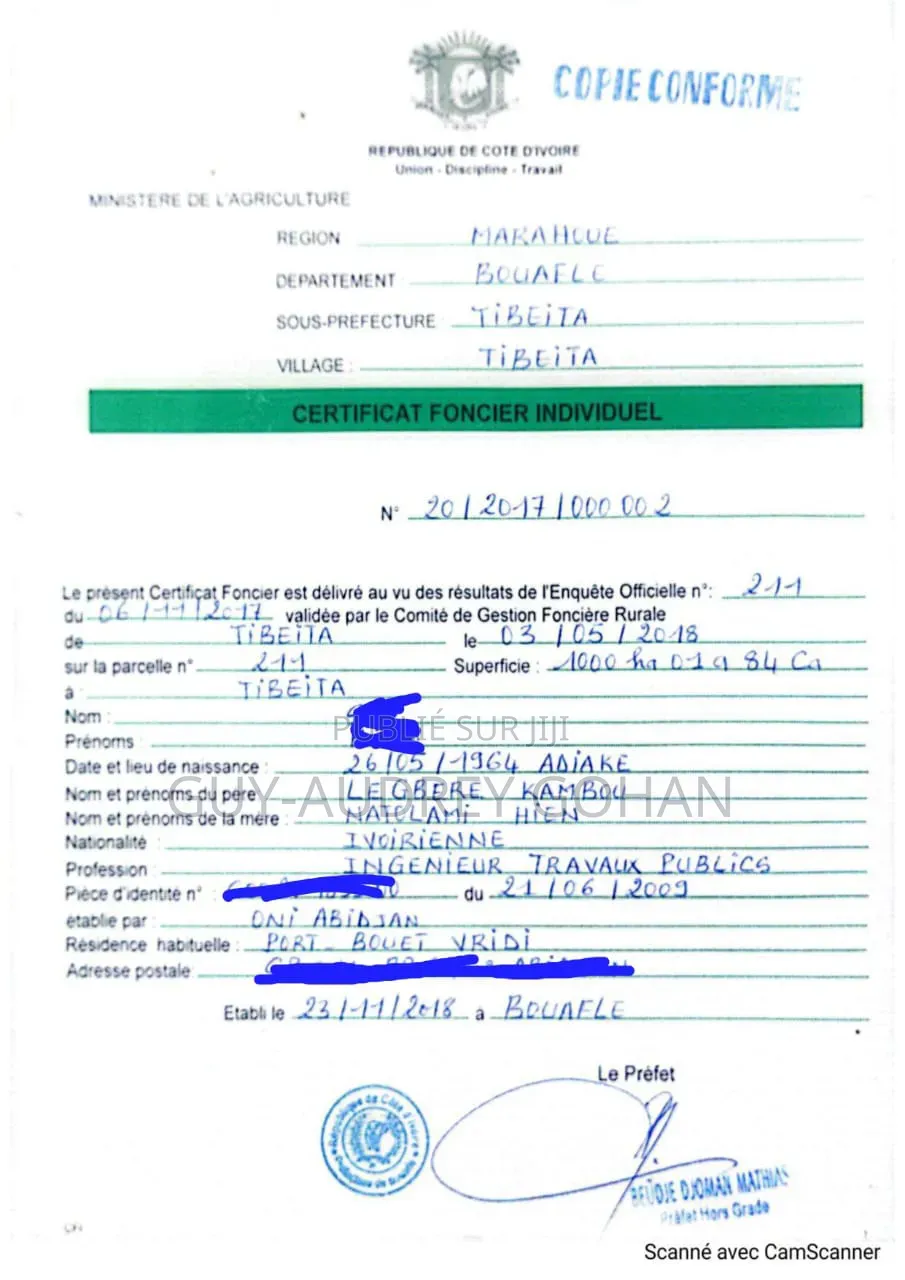 COPIE CONFORME
REPUBLIQUE DE COTE D'IVOIRE
Union - Discipline - Travail
MINISTERE DE L'AGRICULTURE
REGION MARAHOUE
DEPARTEMENT BOUAFLE
SOUS-PREFECTURE TIBEITA
VILLAGE : TIBEITA
CERTIFICAT FONCIER INDIVIDUEL
N° 20/2017/000 002
Le présent Certificat Foncier est délivré au vu des résultats de l'Enquête Officielle n°: 211
du 06/11/2017 validée par le Comité de Gestion Foncière Rurale
de TIBEITA le 03/05/2018
sur la parcelle n° 211 Superficie : 1000 ha 01 a 84 Ca
à : TIBEITA
Nom :
PUBLIÉ SUR JIJI
Prénoms :
Date et lieu de naissance : 26/05/1964 ADIAKE
Nom et prénoms du père LEGBERE KAMBOU
GUY-AUDREY GOHAN
Nom et prénoms de la mère : HIEN
Nationalité : IVOIRIENNE
Profession : INGENIEUR TRAVAUX PUBLICS
Pièce d'identité n° : du 21/06/2009
établie par : ONI ABIDJAN
Résidence habituelle : PORT-BOUET VRIDI
Adresse postale
Etabli le 23/11/2018 à BOUAFLE
Le Préfet
République de Côte d'Ivoire
BEUDJE DJOMAN MATHIAS
Préfet Hors Grade
Scanné avec CamScanner